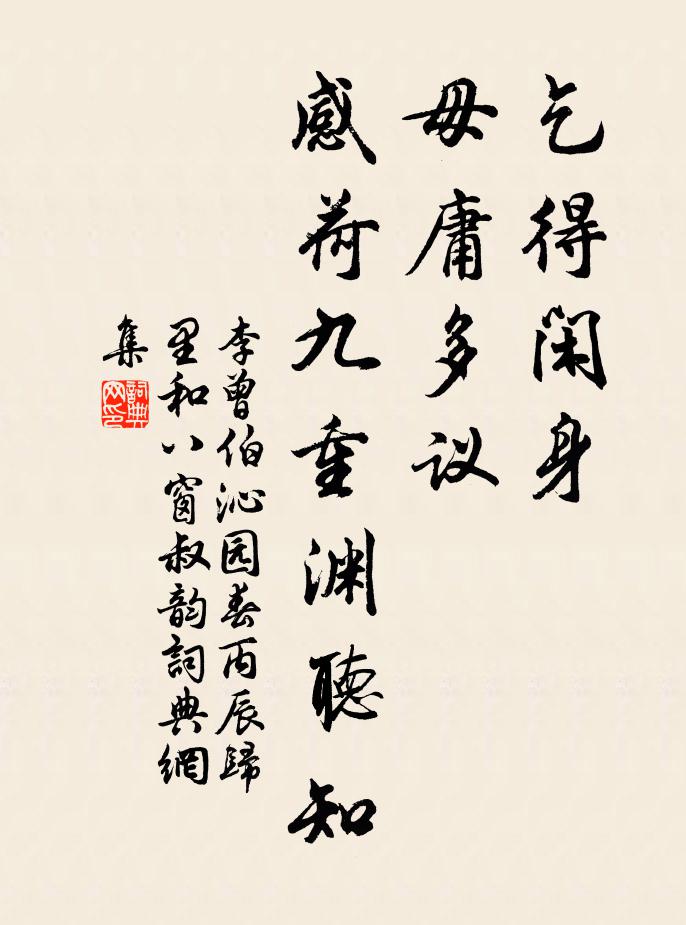 乞得闲身
毋庸多议
感荷九重渊聽知
李曾伯沁园春丙辰歸
里和八窗叔韵詞典網
集
詞典
网印